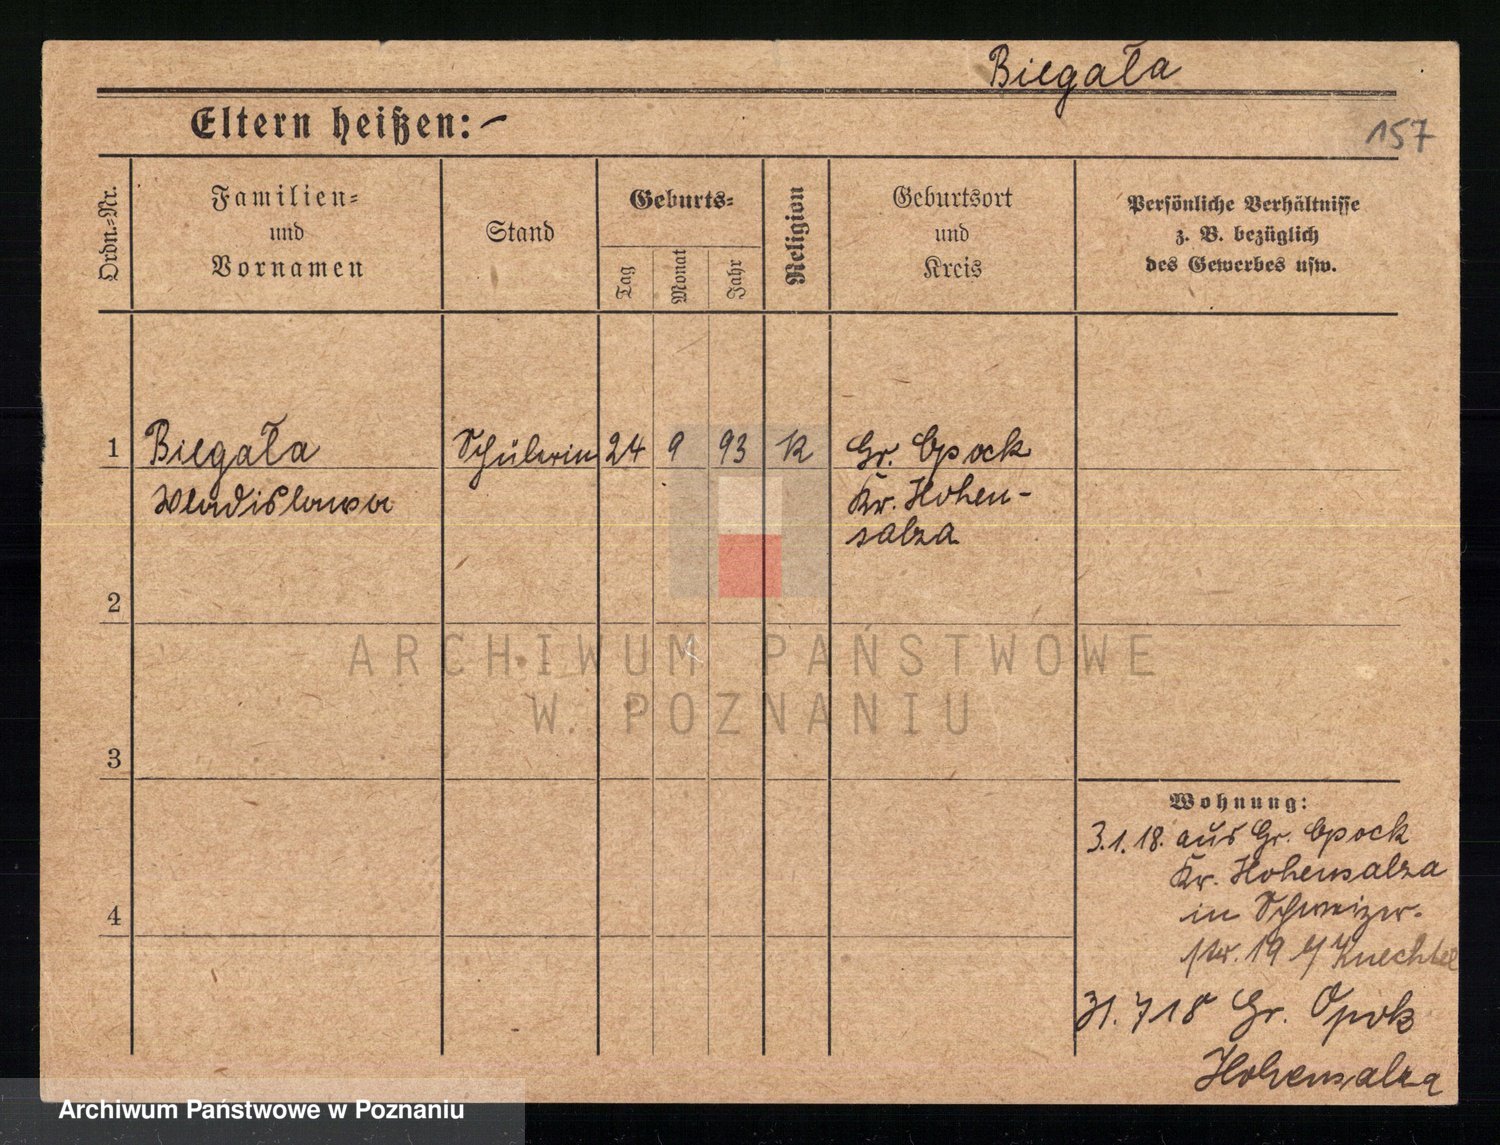 Biegała
Eltern heißen: -
157
Ordn.-Nr.
Familien-
und
Vornamen
Stand
Geburts-
Tag
Monat
Jahr
Religion
Geburtsort
und
Kreis
Persönliche Verhältnisse
z. B. bezüglich
des Gewerbes usw.
1 Biegała Schülerin 24 9 93 K Gr. Opock
Wladislawa Kr. Hohen-
salza
2
3
4
Wohnung:
3.1.18. aus Gr. Opock
Kr. Hohensalza
in Schweizer-
str. 19 b/ Knechtel
31.7 18 Gr. Opok
Hohensalza
ARCHIWUM PAŃSTWOWE
W POZNANIU
Archiwum Państwowe w Poznaniu